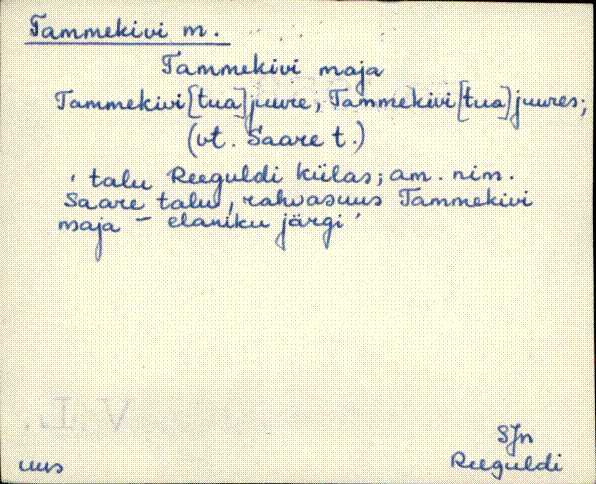 Tammekivi m.
Tammekivi maja
Tammekivi [tua] juure, Tammekivi [tua] juures;
(vt. Saare t.)
' talu Reeguldi külas; am. nim.
Saare talu, rahvasuus Tammekivi
maja – elaniku järgi '
SJn
uus
Reeguldi